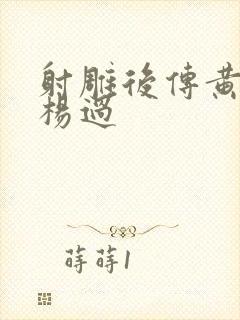 射雕後傳黃
楊過
蒔蒔1